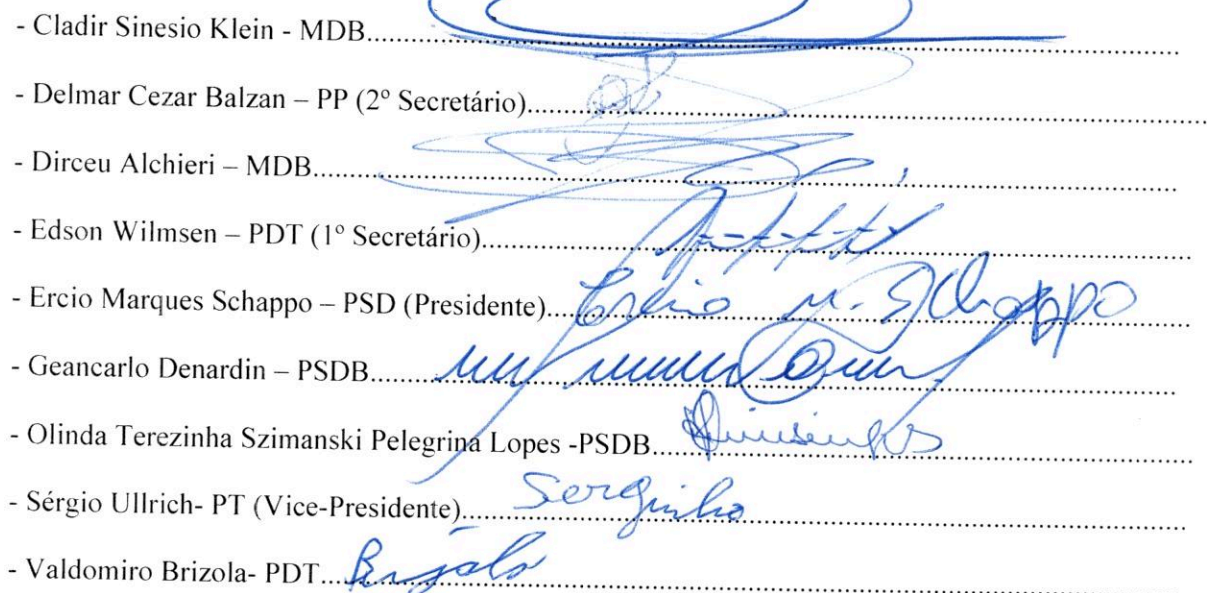 - Cladir Sinesio Klein - MDB
- Delmar Cezar Balzan – PP (2º Secretário)
- Dirceu Alchieri – MDB
- Edson Wilmsen – PDT (1º Secretário)
- Ercio Marques Schappo – PSD (Presidente) Ercio M. Schappo
- Geancarlo Denardin – PSDB
- Olinda Terezinha Szimanski Pelegrina Lopes -PSDB
- Sérgio Ullrich- PT (Vice-Presidente) Serginho
- Valdomiro Brizola- PDT Brizola